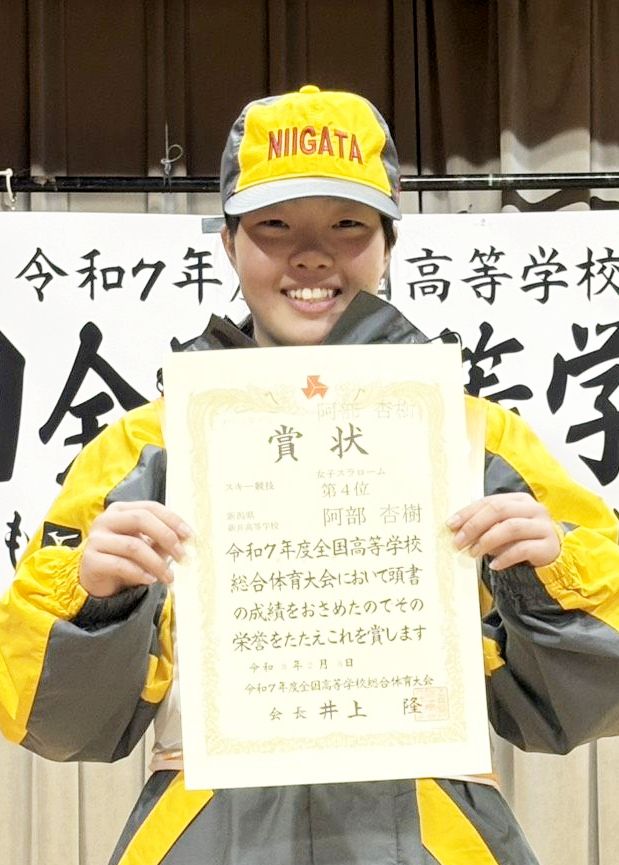 NIIGATA
令和7年
高等学校
全
等学
阿部 杏樹
賞状
スキー競技
女子スラローム
第4位
新潟県
新井高等学校
阿部 杏樹
令和7年度全国高等学校
総合体育大会において頭書
の成績をおさめたのでその
栄誉をたたえこれを賞します
令和 年2月 日
令和7年度全国高等学校総合体育大会
会長 井上 隆